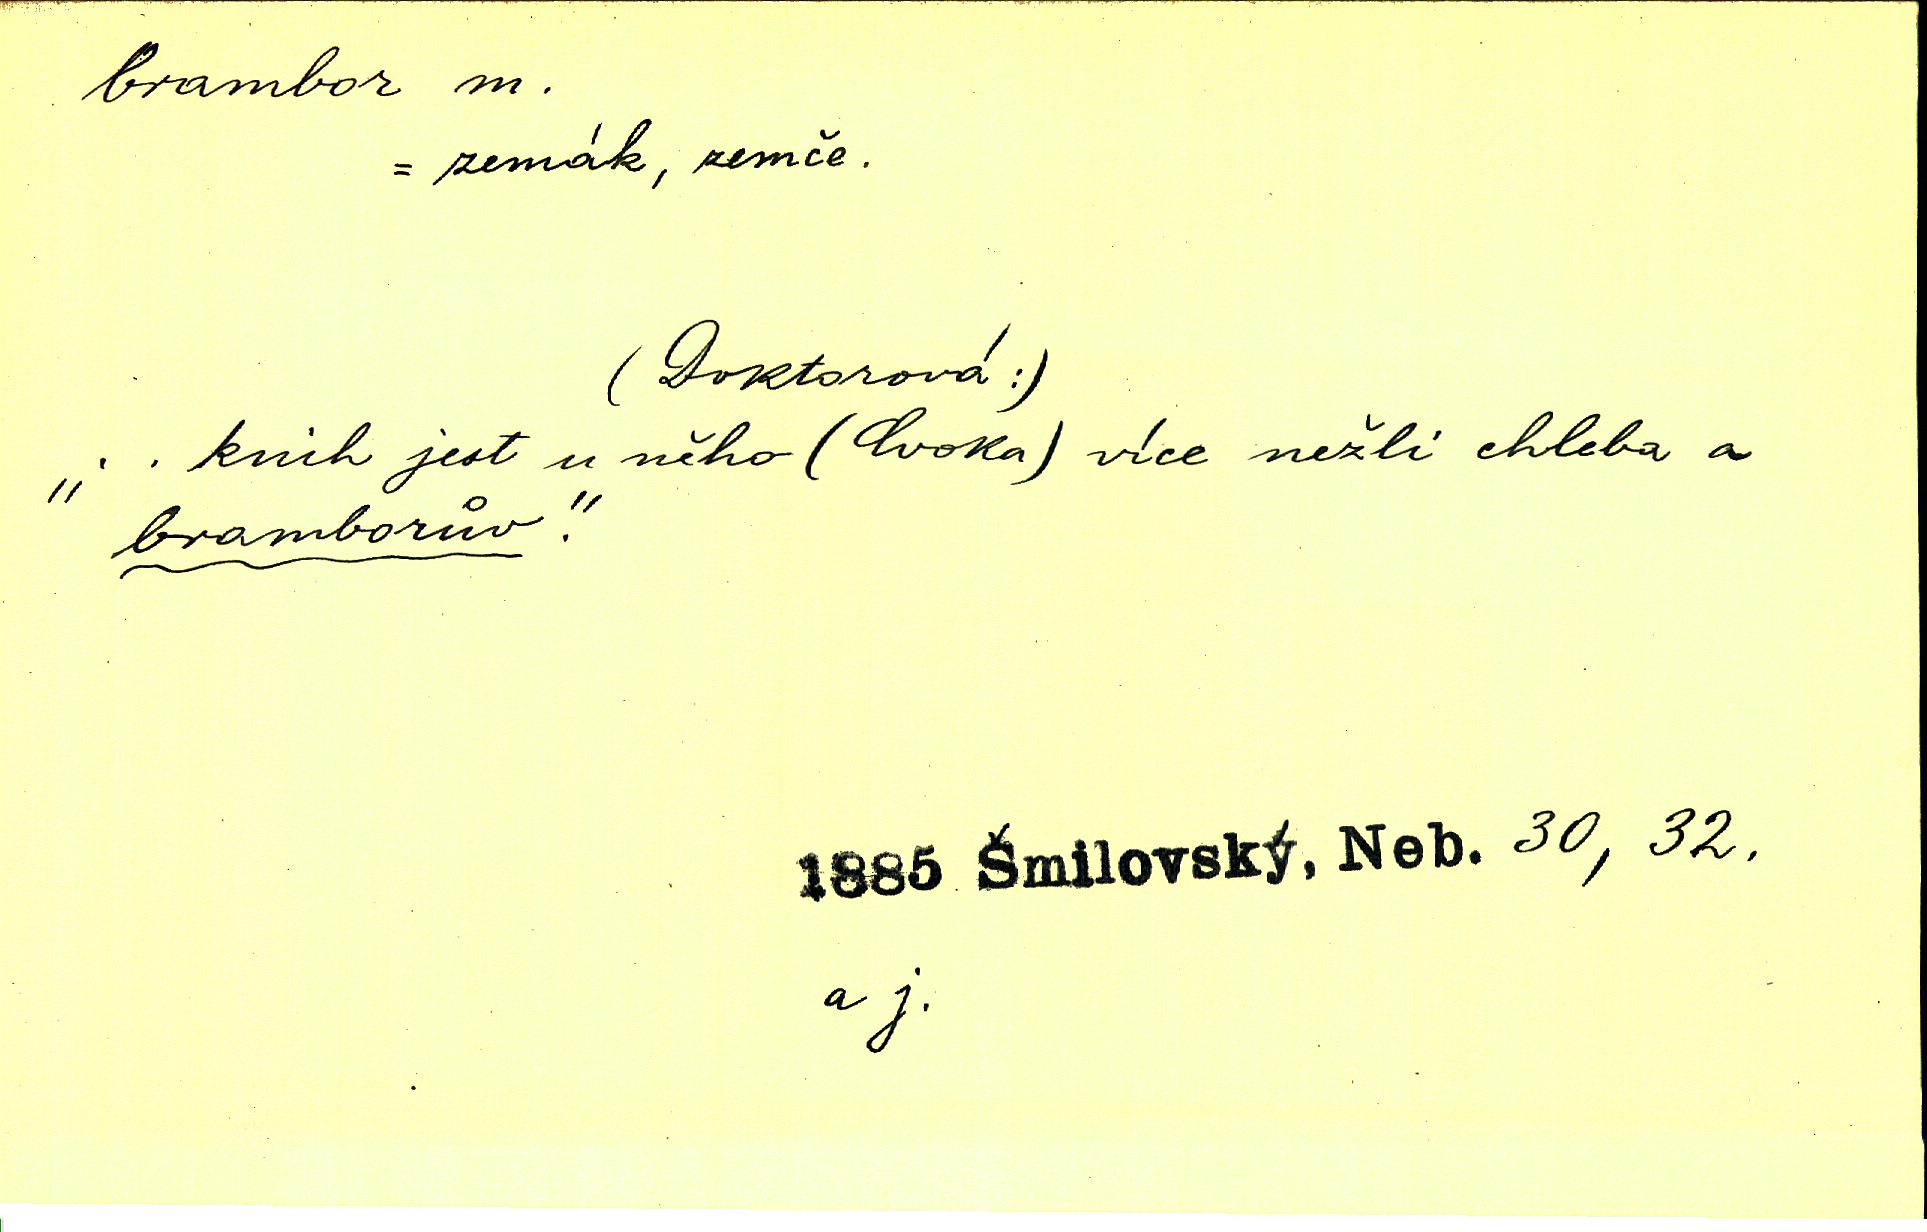 brambor m.
= zemák, zemče.
(Doktorová:)
„. . knih jest u něho (Cvoka) více nežli chleba a
bramborův."
1885 Šmilovský, Neb. 30, 32.
a j.